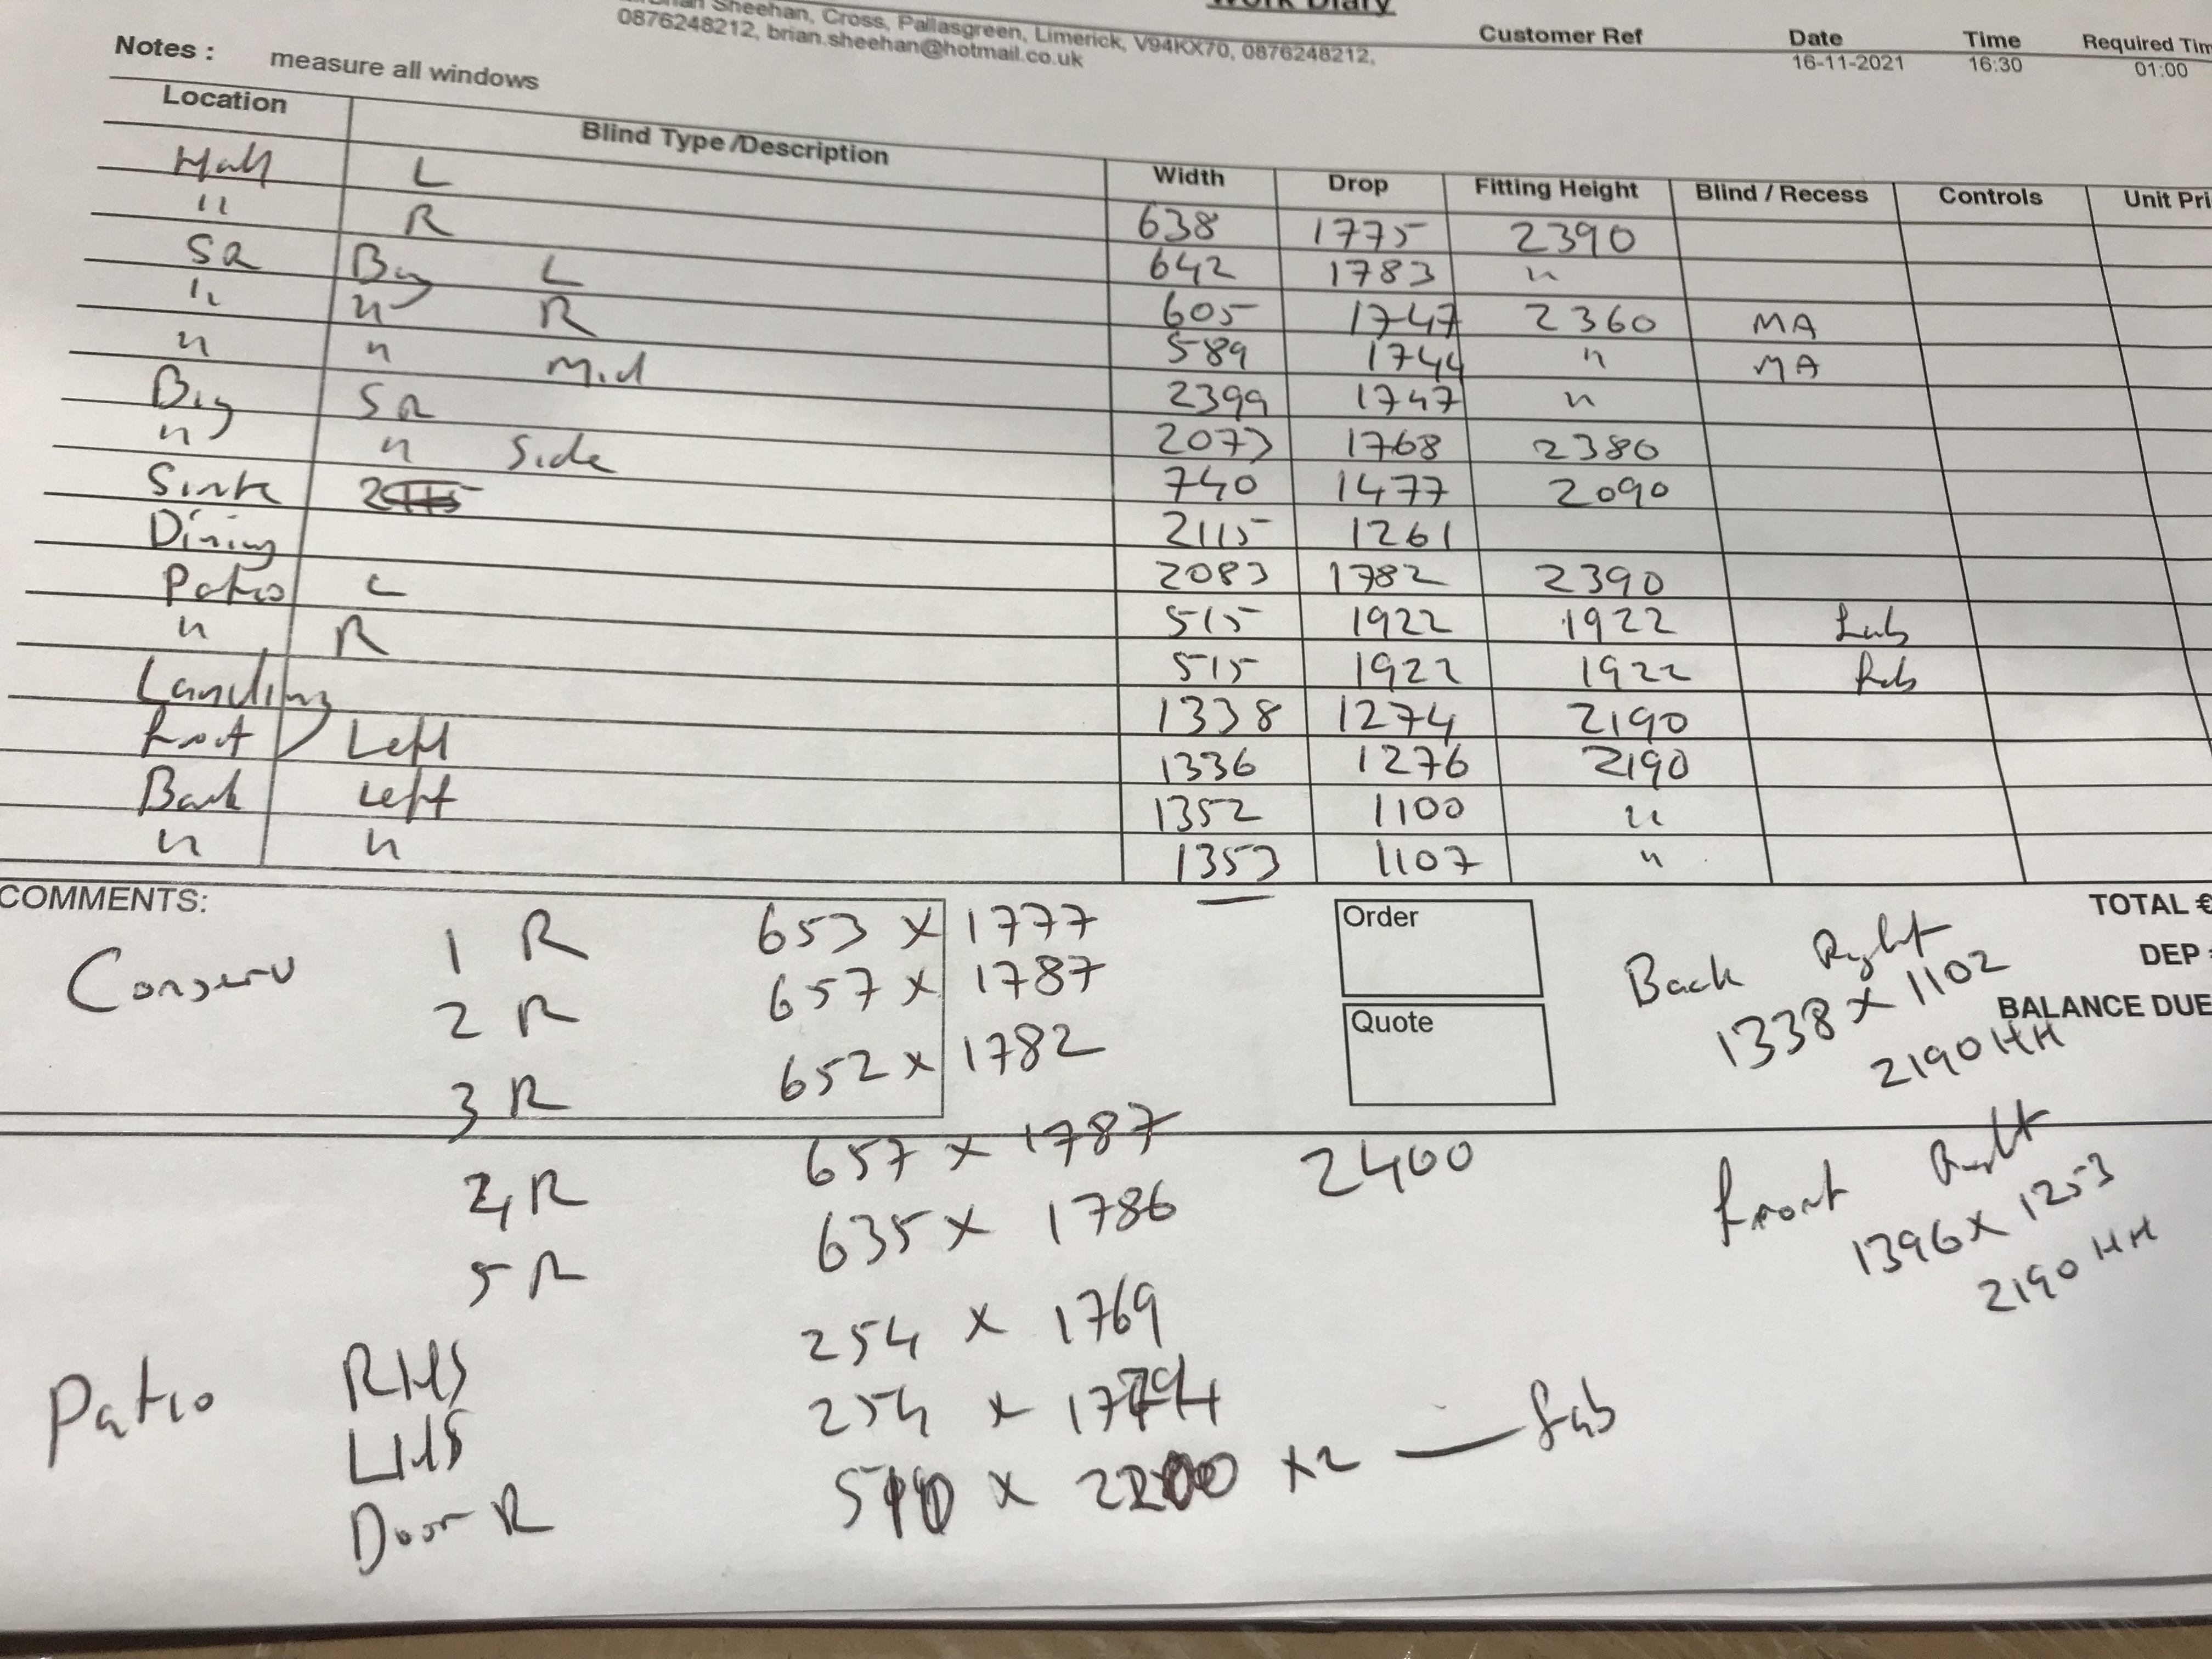 Work Diary
Brian Sheehan, Cross, Pallasgreen, Limerick, V94KX70, 0876248212,
0876248212, brian.sheehan@hotmail.co.uk
Customer Ref Date Time Required Tim
16-11-2021 16:30 01:00
Notes : measure all windows
Location Blind Type /Description Width Drop Fitting Height Blind / Recess Controls Unit Pri
Hall L 638 1775 2390
" R 642 1783 "
SR Bay L 605 1747 2360 MA
" " R 589 1744 " MA
" " Mid 2399 1747 "
Bay SR 2073 1768 2380
" " Side 740 1477 2090
Sink 2115 1261
Dining 2083 1782 2390
Patio L 515 1922 1922
" R 515 1922 1922
Landing 1338 1274 2190
Front Left 1336 1276 2190
Back Left 1352 1100 "
" " 1353 1107 "
COMMENTS:
Order
Quote
TOTAL €
DEP
BALANCE DUE
Conserv 1 R 653 x 1777
2 R 657 x 1787
3 R 652 x 1782
4 R 657 x 1787 2400
5 R 635 x 1786
Patio RHS 254 x 1769
LHS 254 x
Door R x x2
Back Right
1338 x 1102
2190 HH
Front Right
1396 x 1253
2190 HH